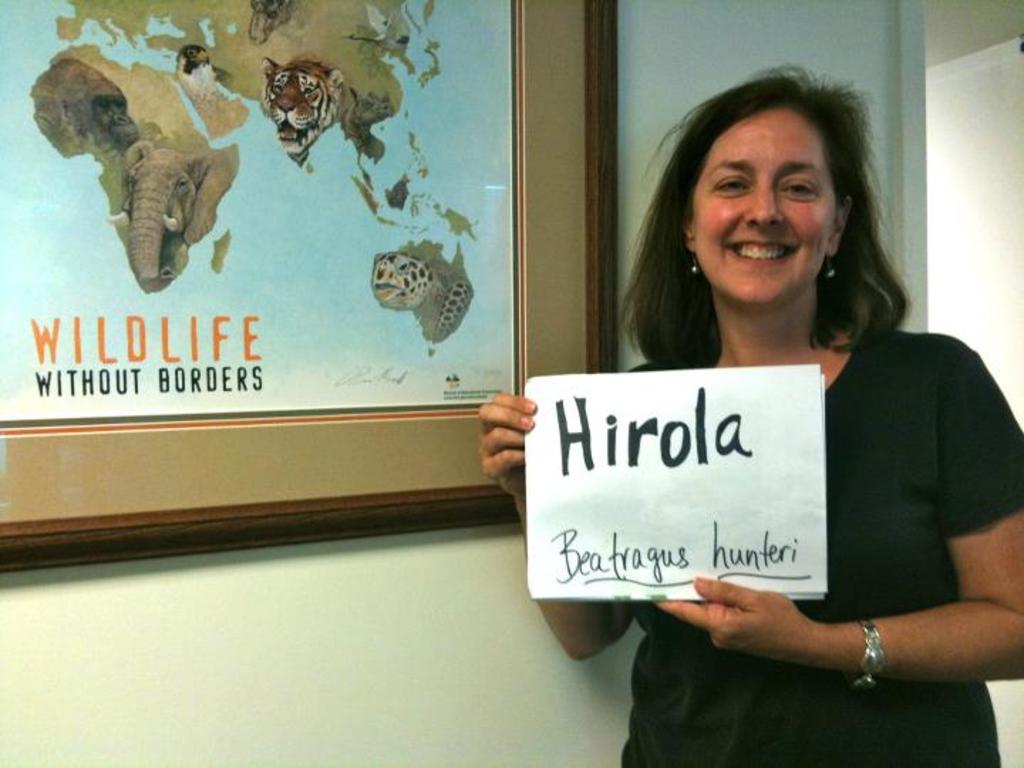 WILDLIFE
WITHOUT BORDERS
Hirola
Beatragus hunteri